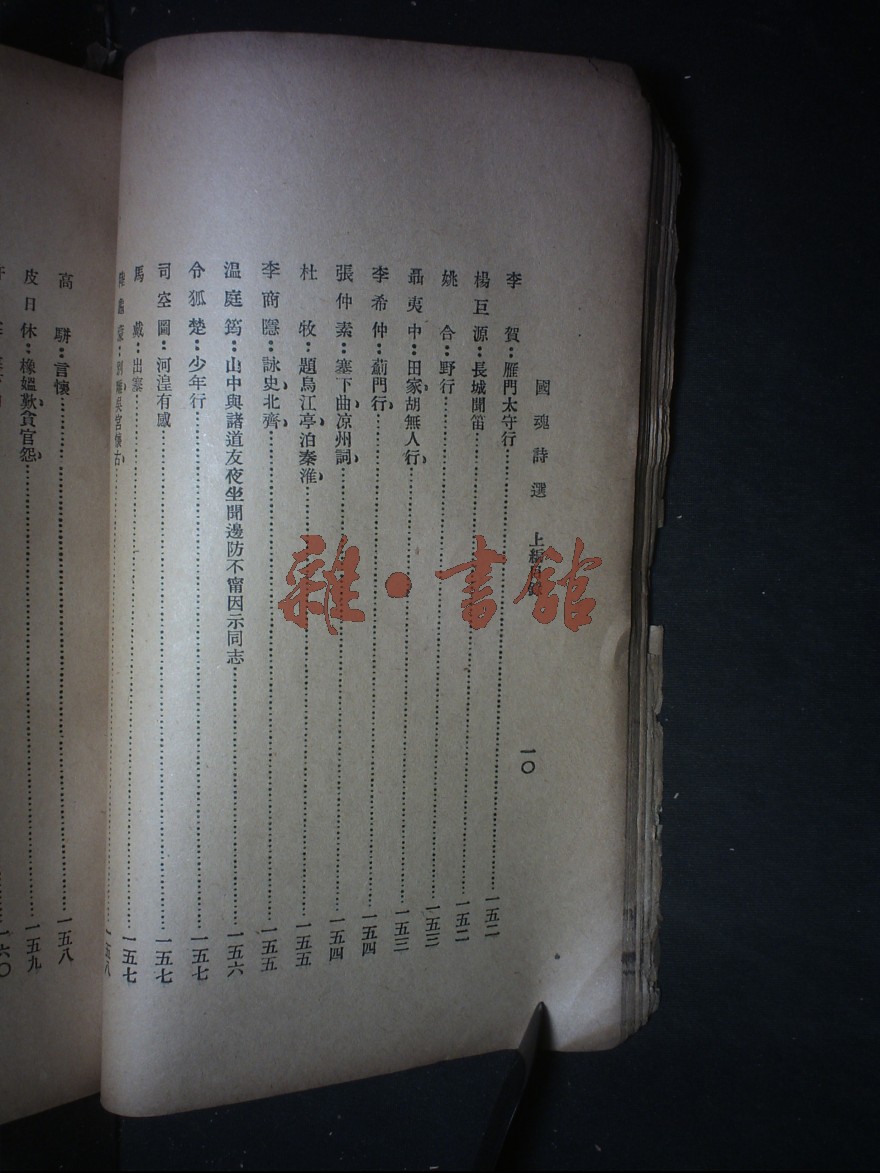 國魂詩選 上編目錄 一〇
李賀：雁門太守行 一五二
楊巨源：長城聞笛 一五二
姚合：野行 一五三
聶夷中：田家、胡無人行、 一五三
李希仲：薊門行、 一五四
張仲素：塞下曲、凉州詞、 一五四
杜牧：題烏江亭、泊秦淮、 一五五
李商隱：詠史、北齊、 一五五
温庭筠：山中與諸道友夜坐聞邊防不甯因示同志 一五六
令狐楚：少年行 一五七
司空圖：河湟有感 一五七
馬戴：出塞 一五七
吳宮懷古、 一五八
高駢：言懷 一五八
皮日休：橡媼歎、貪官怨、 一五九
一六〇
雜·書館